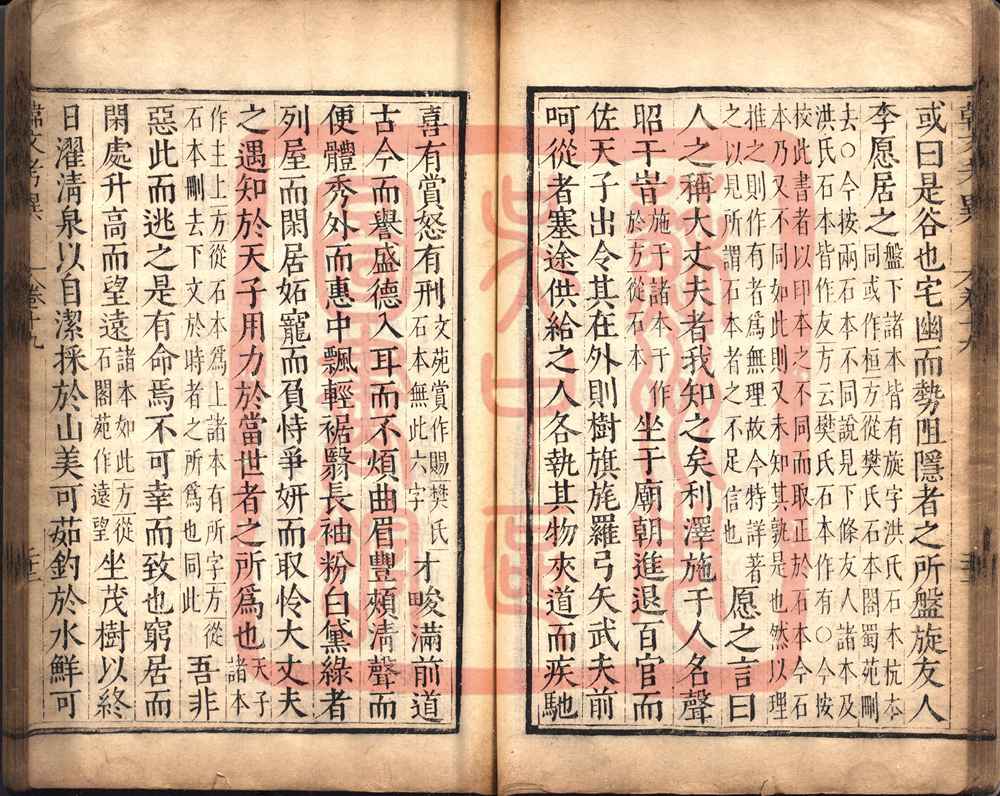 或曰是谷也宅幽而勢阻隱者之所盤旋友人
李愿居之盤下諸本皆有旋字洪氏石本杭本同或作桓方從樊氏石本閣蜀苑刪
去〇今按兩石本不同說見下條友人諸本及洪氏石本皆作友方云樊氏石本作有〇今按
校此書者以印本之不同而取正於石本今石本乃又不同如此則又未知其孰是也然以理
推之則作有者爲無理故今特詳著之以見所謂石本者之不足信也愿之言曰
人之稱大丈夫者我知之矣利澤施于人名聲
昭于旹施于諸本于作於方從石本坐于廟朝進退百官而
佐天子出令其在外則樹旗旄羅弓矢武夫前
呵從者塞途供給之人各執其物夾道而疾馳
喜有賞怒有刑文苑賞作賜樊氏石本無此六字才畯滿前道
古今而譽盛德入耳而不煩曲眉豐頰清聲而
便體秀外而惠中飄輕裾翳長袖粉白黛綠者
列屋而閑居妬寵而負恃爭妍而取怜大丈夫
之遇知於天子用力於當世者之所爲也天子諸本
作主上方從石本爲上諸本有所字方從石本刪去下文於時者之所爲也同此吾非
惡此而逃之是有命焉不可幸而致也窮居而
閑處升高而望遠諸本如此方從石閣苑作遠望坐茂樹以終
日濯清泉以自潔採於山美可茹釣於水鮮可
韓文考異 卷十九